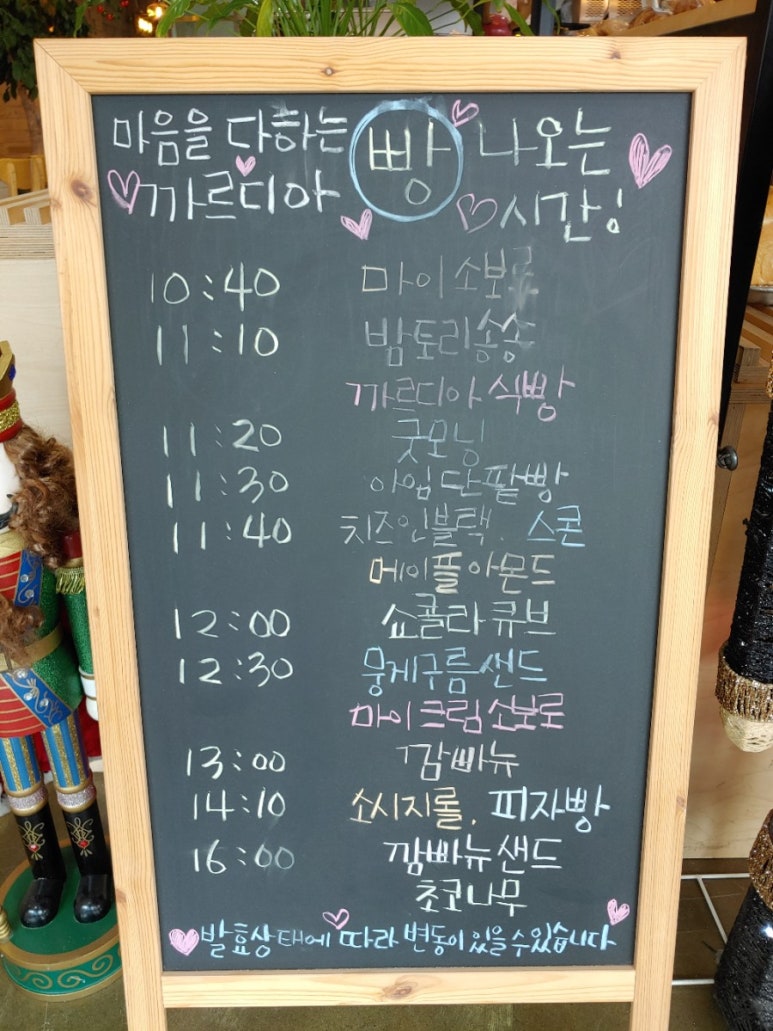 마음을 다하는 빵 나오는
까르디아 시간!
10:40 마이소보로
11:10 밤토리송송
까르디아 식빵
11:20 굿모닝
11:30 아임단팥빵
11:40 치즈인블랙. 스콘
메이플아몬드
12:00 쇼콜라큐브
12:30 뭉게구름샌드
마이크림소보로
13:00 깜빠뉴
14:10 소시지롤, 피자빵
16:00 깜빠뉴샌드
초코나무
발효상태에 따라 변동이 있을 수 있습니다